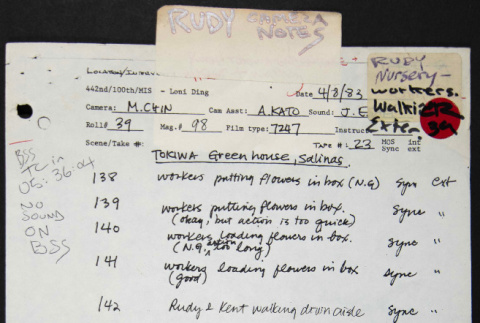 RUDY CAMERA
NOTES
RUDY
Nursery-
workers.
442nd/100th/MIS - Loni Ding
Date 4/8/83
Camera: M.CHIN Cam Asst: A.KATO Sound: J.E
Roll# 39 Mag.# 98 Film type: 7247 Instruc
Scene/Take: TAPE #: 23 MOS int
Sync ext
TOKIWA Greenhouse, Salinas.
BSS
TC in
05:36:04
NO
SOUND
ON
BSS
138 workers putting flowers in box (N.G) Sync ext
139 workers putting flowers in box. Sync "
(okay, but action is too quick)
140 workers loading flowers in box. Sync "
(N.G. action too long)
141 workers loading flowers in box Sync "
(good)
142 Rudy & Kent walking down aisle Sync "